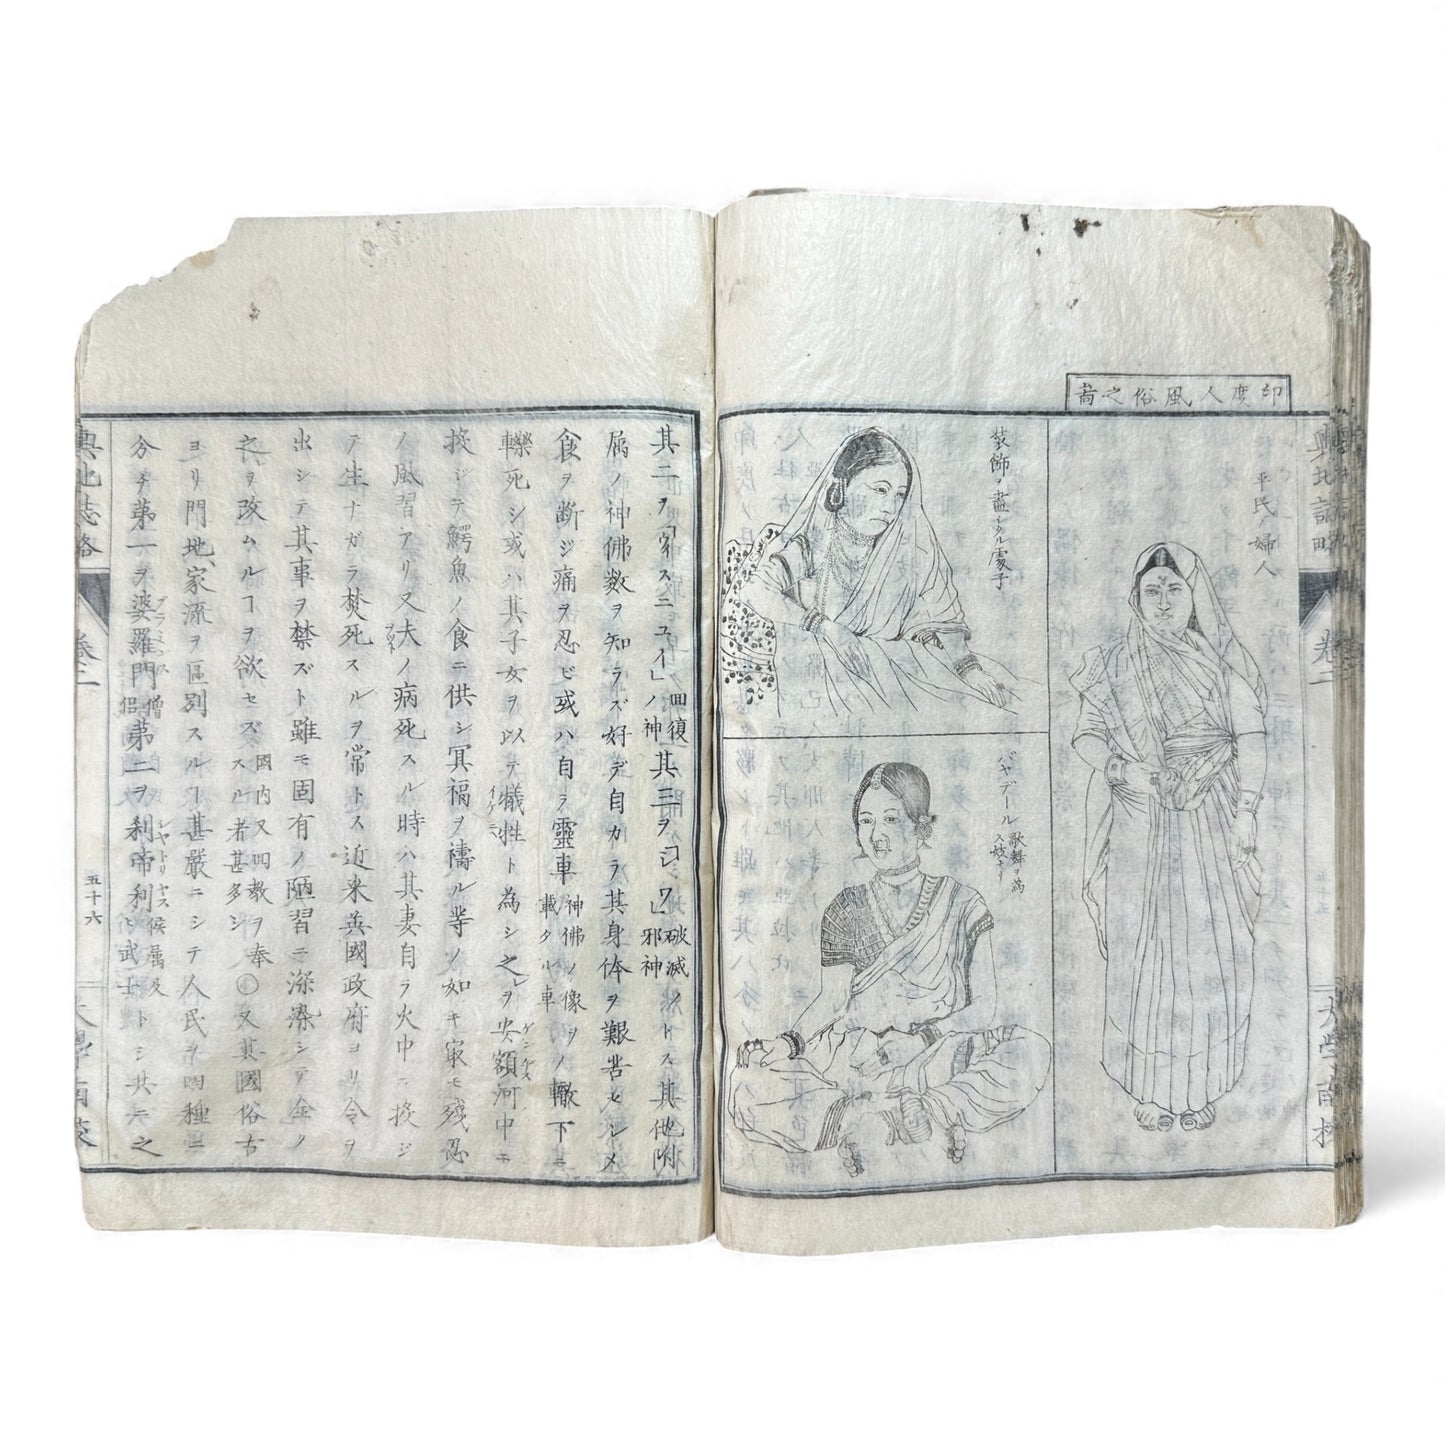 印度人風俗之啚
平民ノ婦人
装飾ヲ盡シタル處子
バヤデール 歌舞ヲ為
ス妓ナリ
輿地誌略
卷二
大學南校
其二ヲ「ウィスニュイ」回復
ノ神其三ヲ「シワ」破滅ノ
邪神トス其他附
属ノ神佛数ヲ知ラズ好デ自カラ其身体ヲ艱苦セシメ
食ヲ断ジ痛ヲ忍ビ或ハ自ラ靈車神佛ノ像ヲ
載タル車ノ轍下ニ
轢死シ或ハ其子女ヲ以テ犠牲ト為シ之ヲ安額河中ニ
投ジテ鰐魚ノ食ニ供シ冥福ヲ禱ル等ノ如キ㝡モ残忍
ノ風習アリ又夫ノ病死スル時ハ其妻自ラ火中ニ投ジ
テ生ナガラ焚死スルヲ常トス近来英國政府ヨリ令ヲ
出シテ其事ヲ禁ズト雖モ固有ノ陋習ニ深染シテ全ク
之ヲ改ムルヿヲ欲セズ國内又回教ヲ奉
スル者甚多シ〇又其國俗古
ヨリ門地家流ヲ區別スルヿ甚嚴ニシテ人民ヲ四種ニ
分チ第一ヲ婆羅門僧
侶第二ヲ刹帝利侯属及
ヒ武士トシ其六之
輿地誌略
卷二
五十六
大學南校